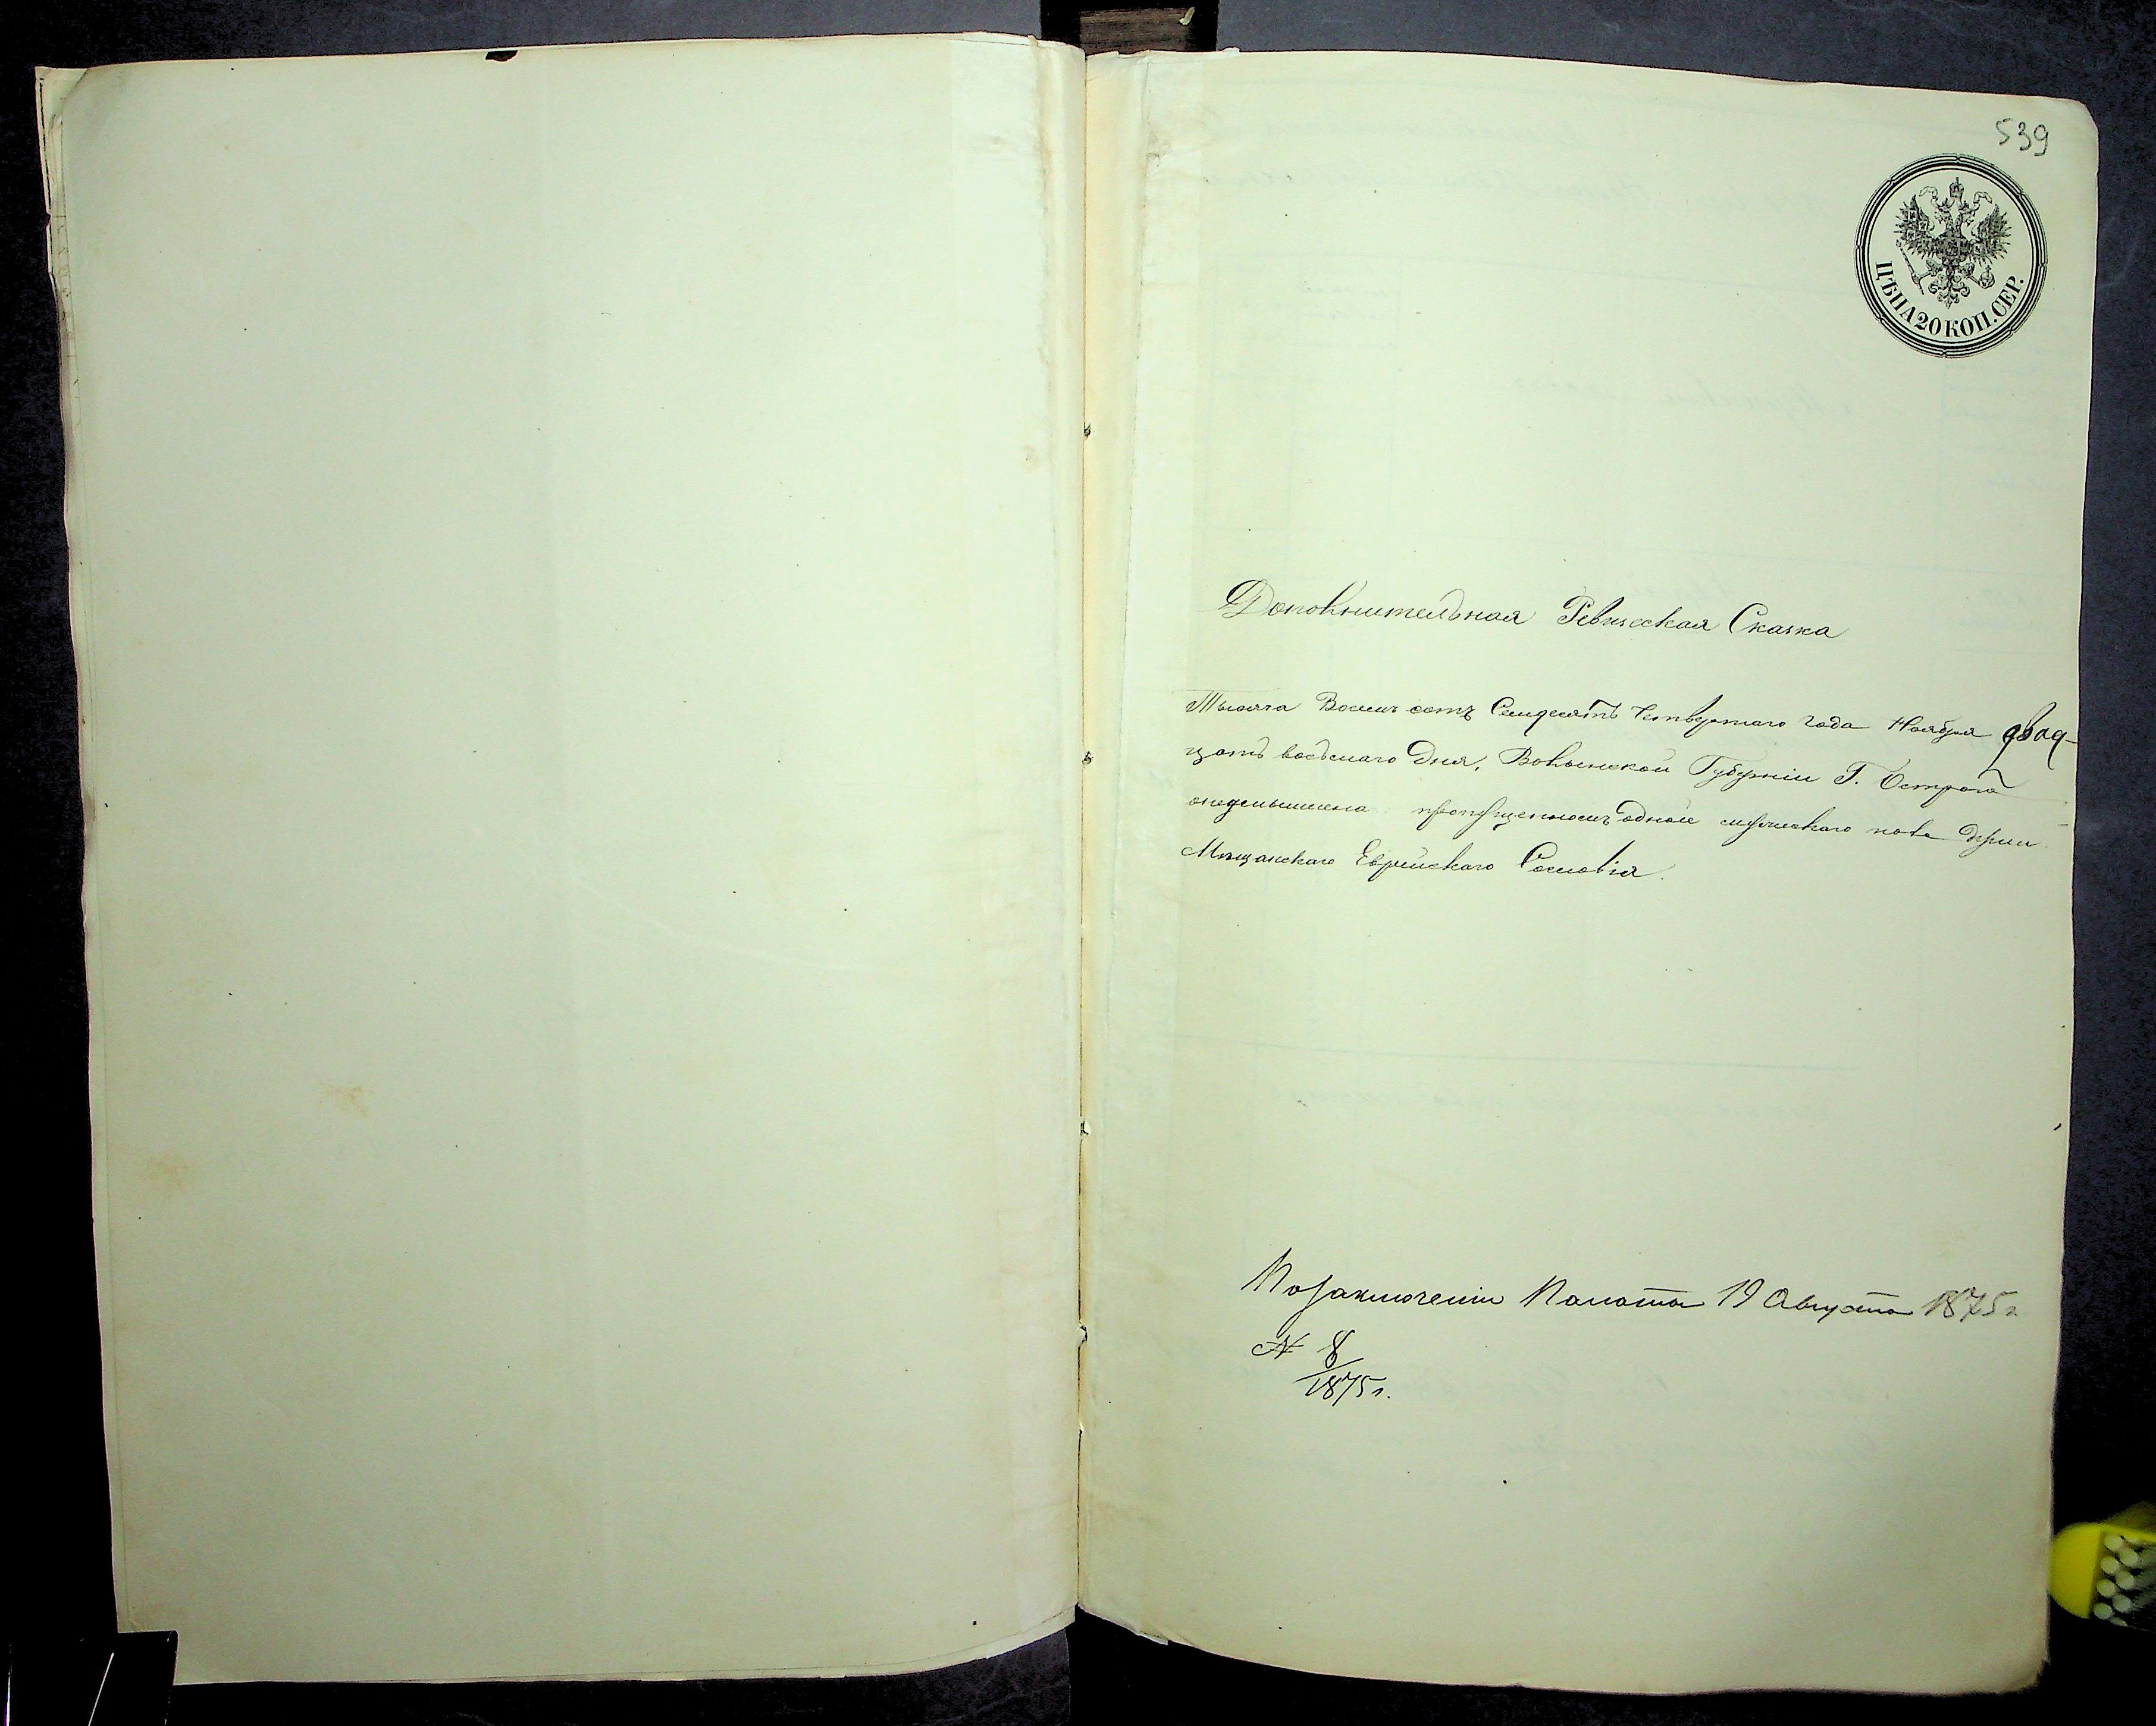 539
ЦѢНА 20 КОП. СЕР.
Дополнительная Ревизская Сказка
Тысяча Восемь сотъ Семдесятъ Четвертаго года Ноября двад-
цать восьмаго дня, Волынской Губерніи Г. Острога
о пропущенной одной мужескаго пола души
Мѣщанскаго Еврейскаго Сословія.
По заключенію Палаты 19 Августа 1875 г.
№ 8
1875 г.